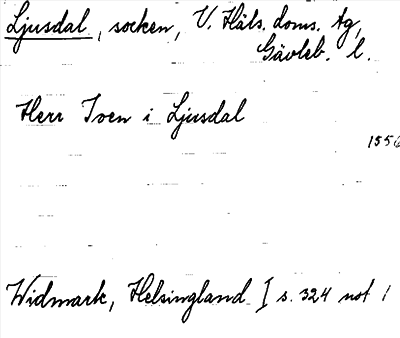 Ljusdal, socken, V. Häls. doms. tg,
Gävleb. l.
Herr Iven i Ljusdal
1556
Widmark, Helsingland I s. 324 not 1